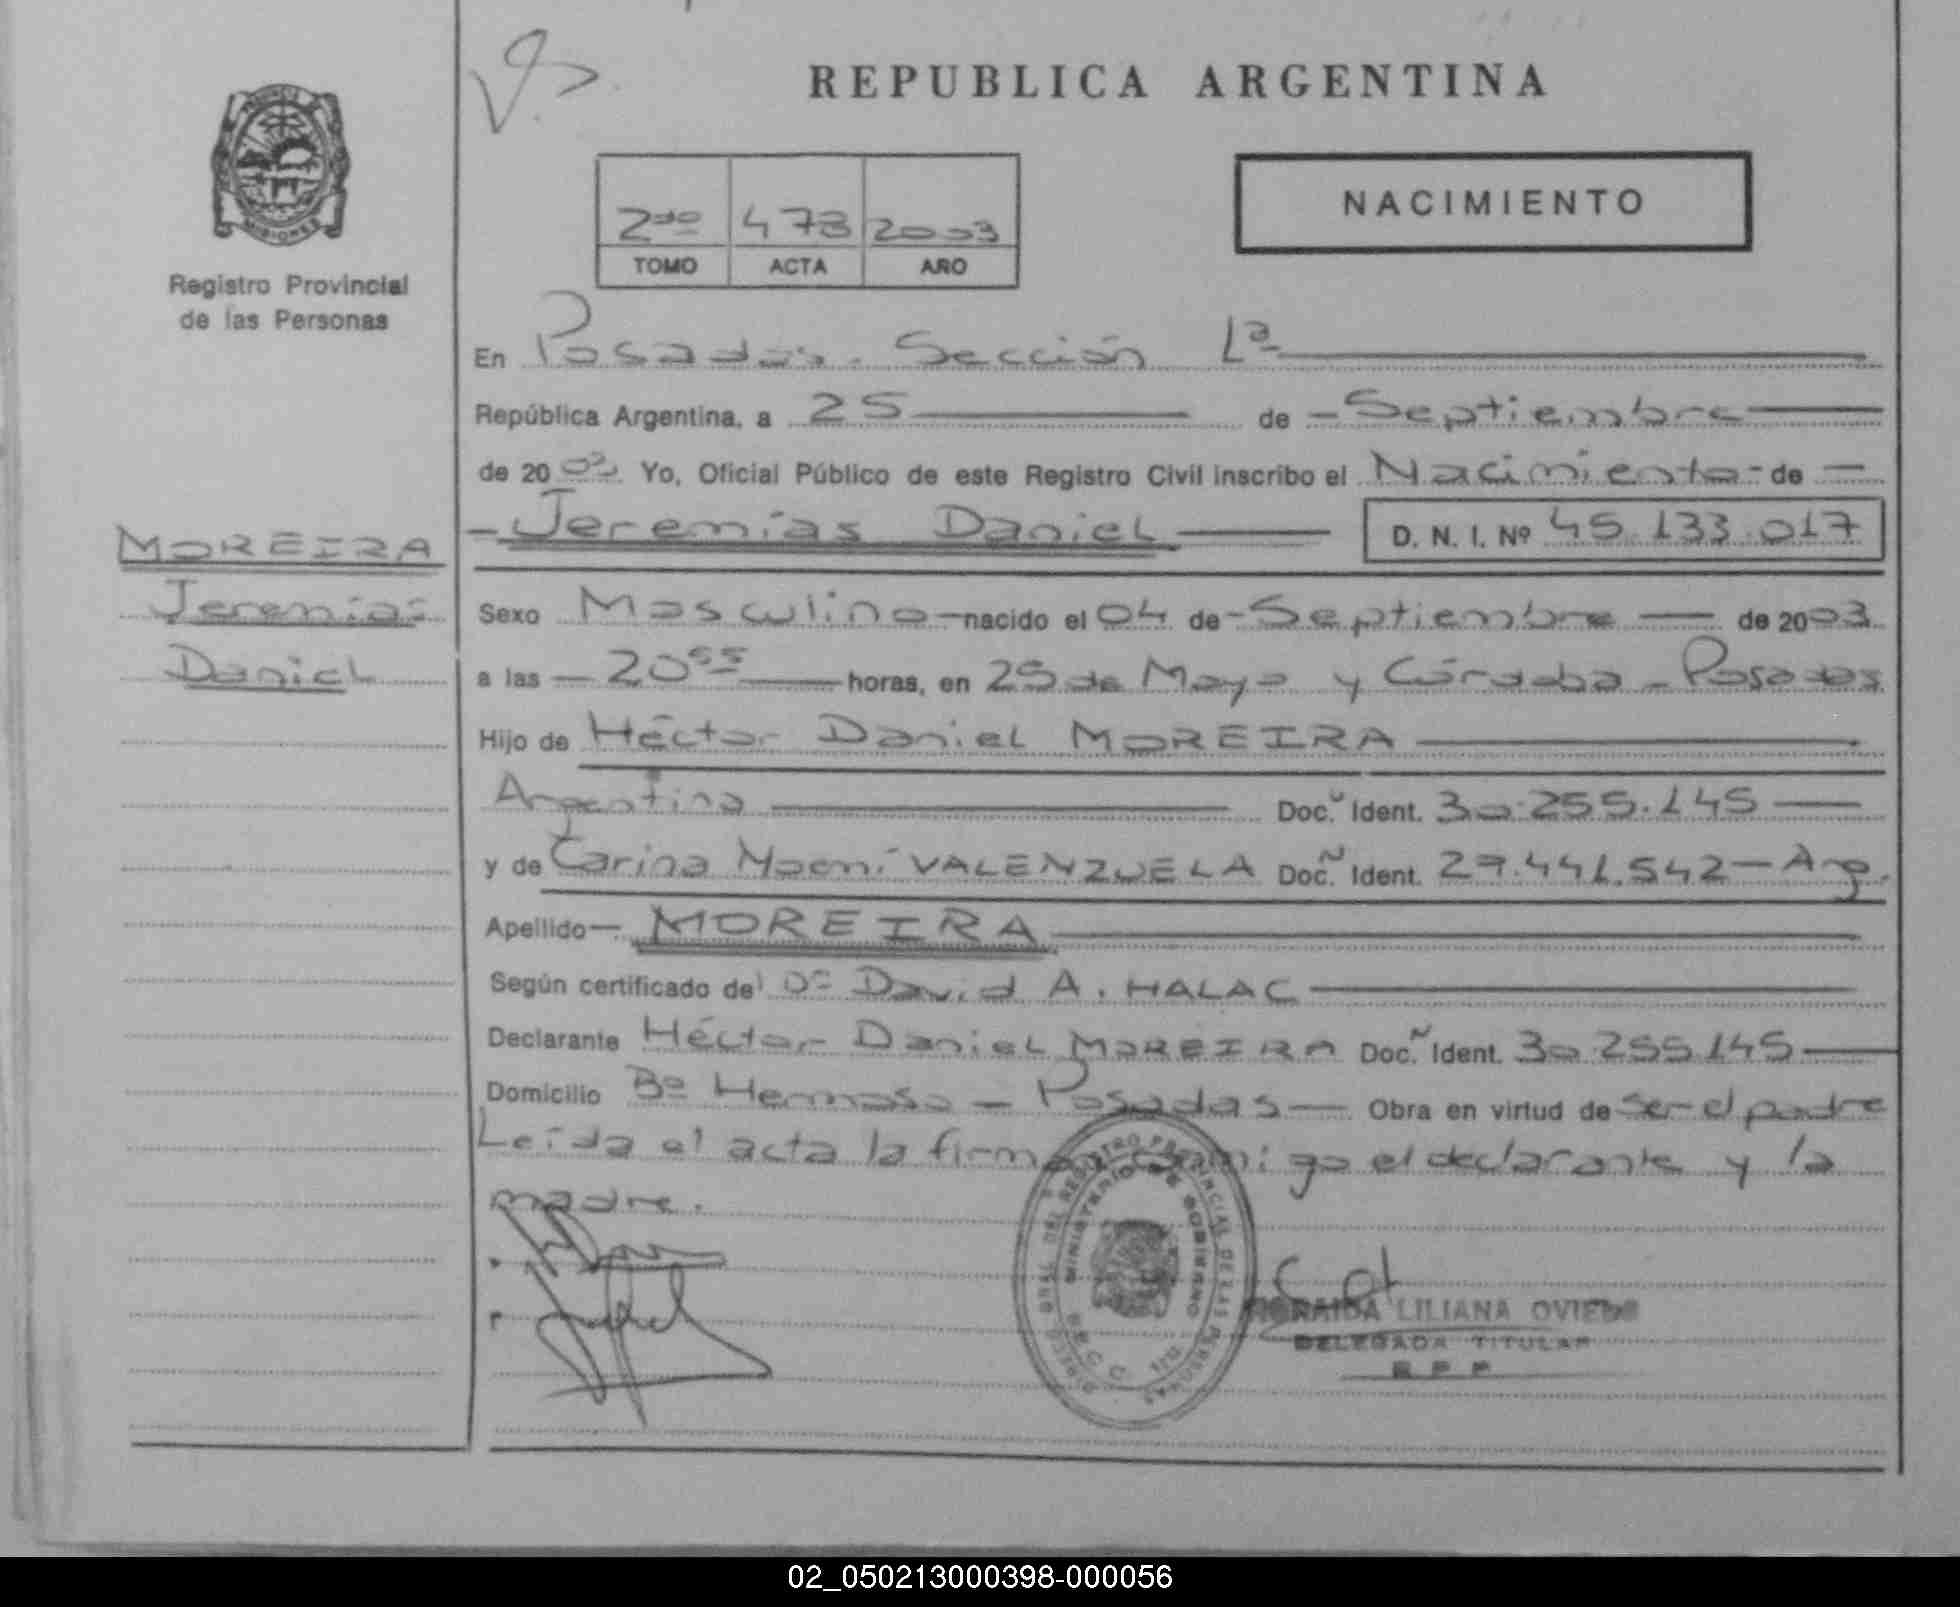 REPUBLICA ARGENTINA
NACIMIENTO
2do 473 2003
TOMO ACTA AÑO
PROVINCIA DE MISIONES
Registro Provincial
de las Personas
MOREIRA
Jeremías
Daniel
En Posadas. Sección 1ª
República Argentina, a 25 de Septiembre
de 2003 Yo, Oficial Público de este Registro Civil inscribo el Nacimiento de
Jeremías Daniel D. N. I. Nº 45.133.017
Sexo Masculino nacido el 04 de Septiembre de 2003
a las 20 55 horas, en 25 de Mayo y Córdoba - Posadas
Hijo de Héctor Daniel MOREIRA
Argentina Doc. Ident. 30.255.145
y de Carina Noemí VALENZUELA Doc. Ident. 27.441.542 - Arg.
Apellido MOREIRA
Según certificado de Dr David A. HALAC
Declarante Héctor Daniel MOREIRA Doc. Ident. 30.255.145
Domicilio Bº Hermoso - Posadas Obra en virtud de ser el padre
Leída el acta la firman conmigo el declarante y la
madre.
MINISTERIO DE GOBIERNO
LILIANA OVIEDO
DELEGADA TITULAR
R P P
02_050213000398-000056